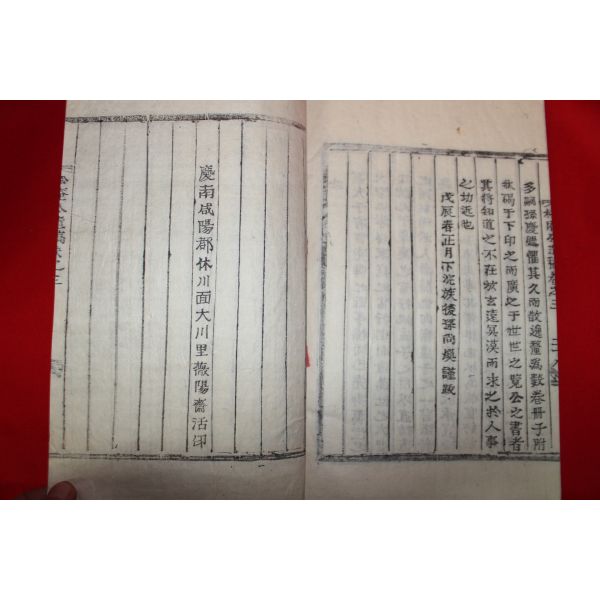 多嗣孫慶 懼其久而散逸釐爲數卷冊子附
狀碣于下印之而廣之于世世之覽公之書者
其將知道之不在於玄遠冥漠而求之於人事
之切近也
戊辰春正月下浣族後孫尙煥謹跋
慶南咸陽郡休川面大川里薇陽齋活印